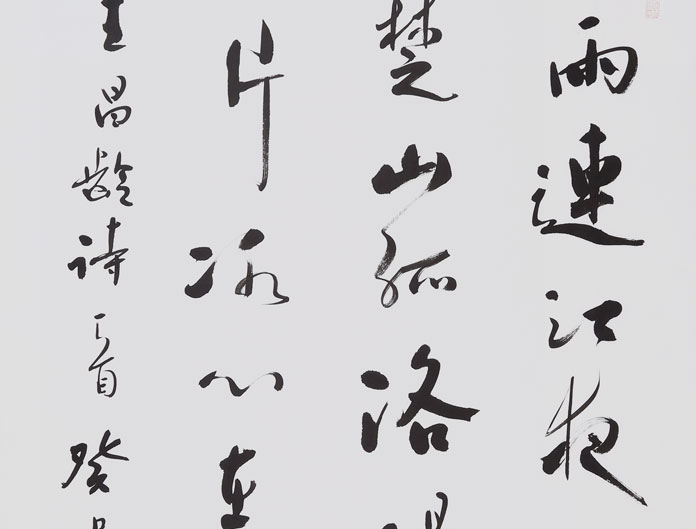 雨連江夜
楚山孤洛
片冰心在
王昌齡詩一首癸